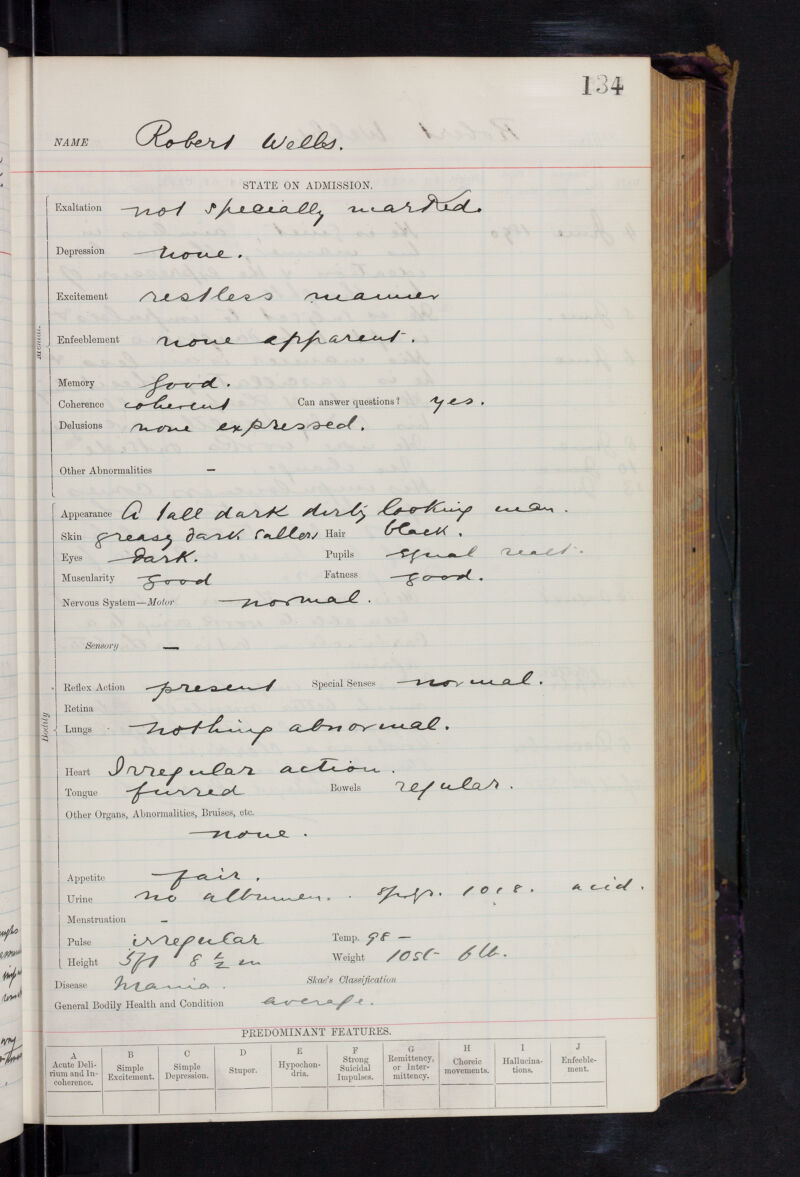 134
NAME Robert Wells.
STATE ON ADMISSION.
Exaltation not specially marked.
Depression none.
Excitement restless manner
Enfeeblement none apparent.
Mental.
Memory good.
Coherence coherent Can answer questions? yes.
Delusions none expressed.
Other Abnormalities –
Appearance A tall dark dirty looking man.
Skin greasy dark sallow Hair black.
Eyes dark. Pupils equal react.
Muscularity good Fatness good.
Nervous System—Motor normal.
Sensory —
Reflex Action present Special Senses normal.
Retina
Bodily
Lungs nothing abnormal.
Heart Irregular action.
Tongue furred Bowels regular.
Other Organs, Abnormalities, Bruises, etc.
none.
Appetite fair.
Urine no albumen. sp.gr. 1018. acid.
Menstruation –
Pulse irregular Temp. 98 –
Height 5ft 8 ½ in Weight 10st 6 lb.
Disease Mania. Skae's Classification
General Bodily Health and Condition average.
PREDOMINANT FEATURES.
A B C D E F G H I J
Acute Delirium and Incoherence. Simple Excitement. Simple Depression. Stupor. Hypochondria. Strong Suicidal Impulses. Remittency, or Intermittency. Choreic movements. Hallucinations. Enfeeblement.